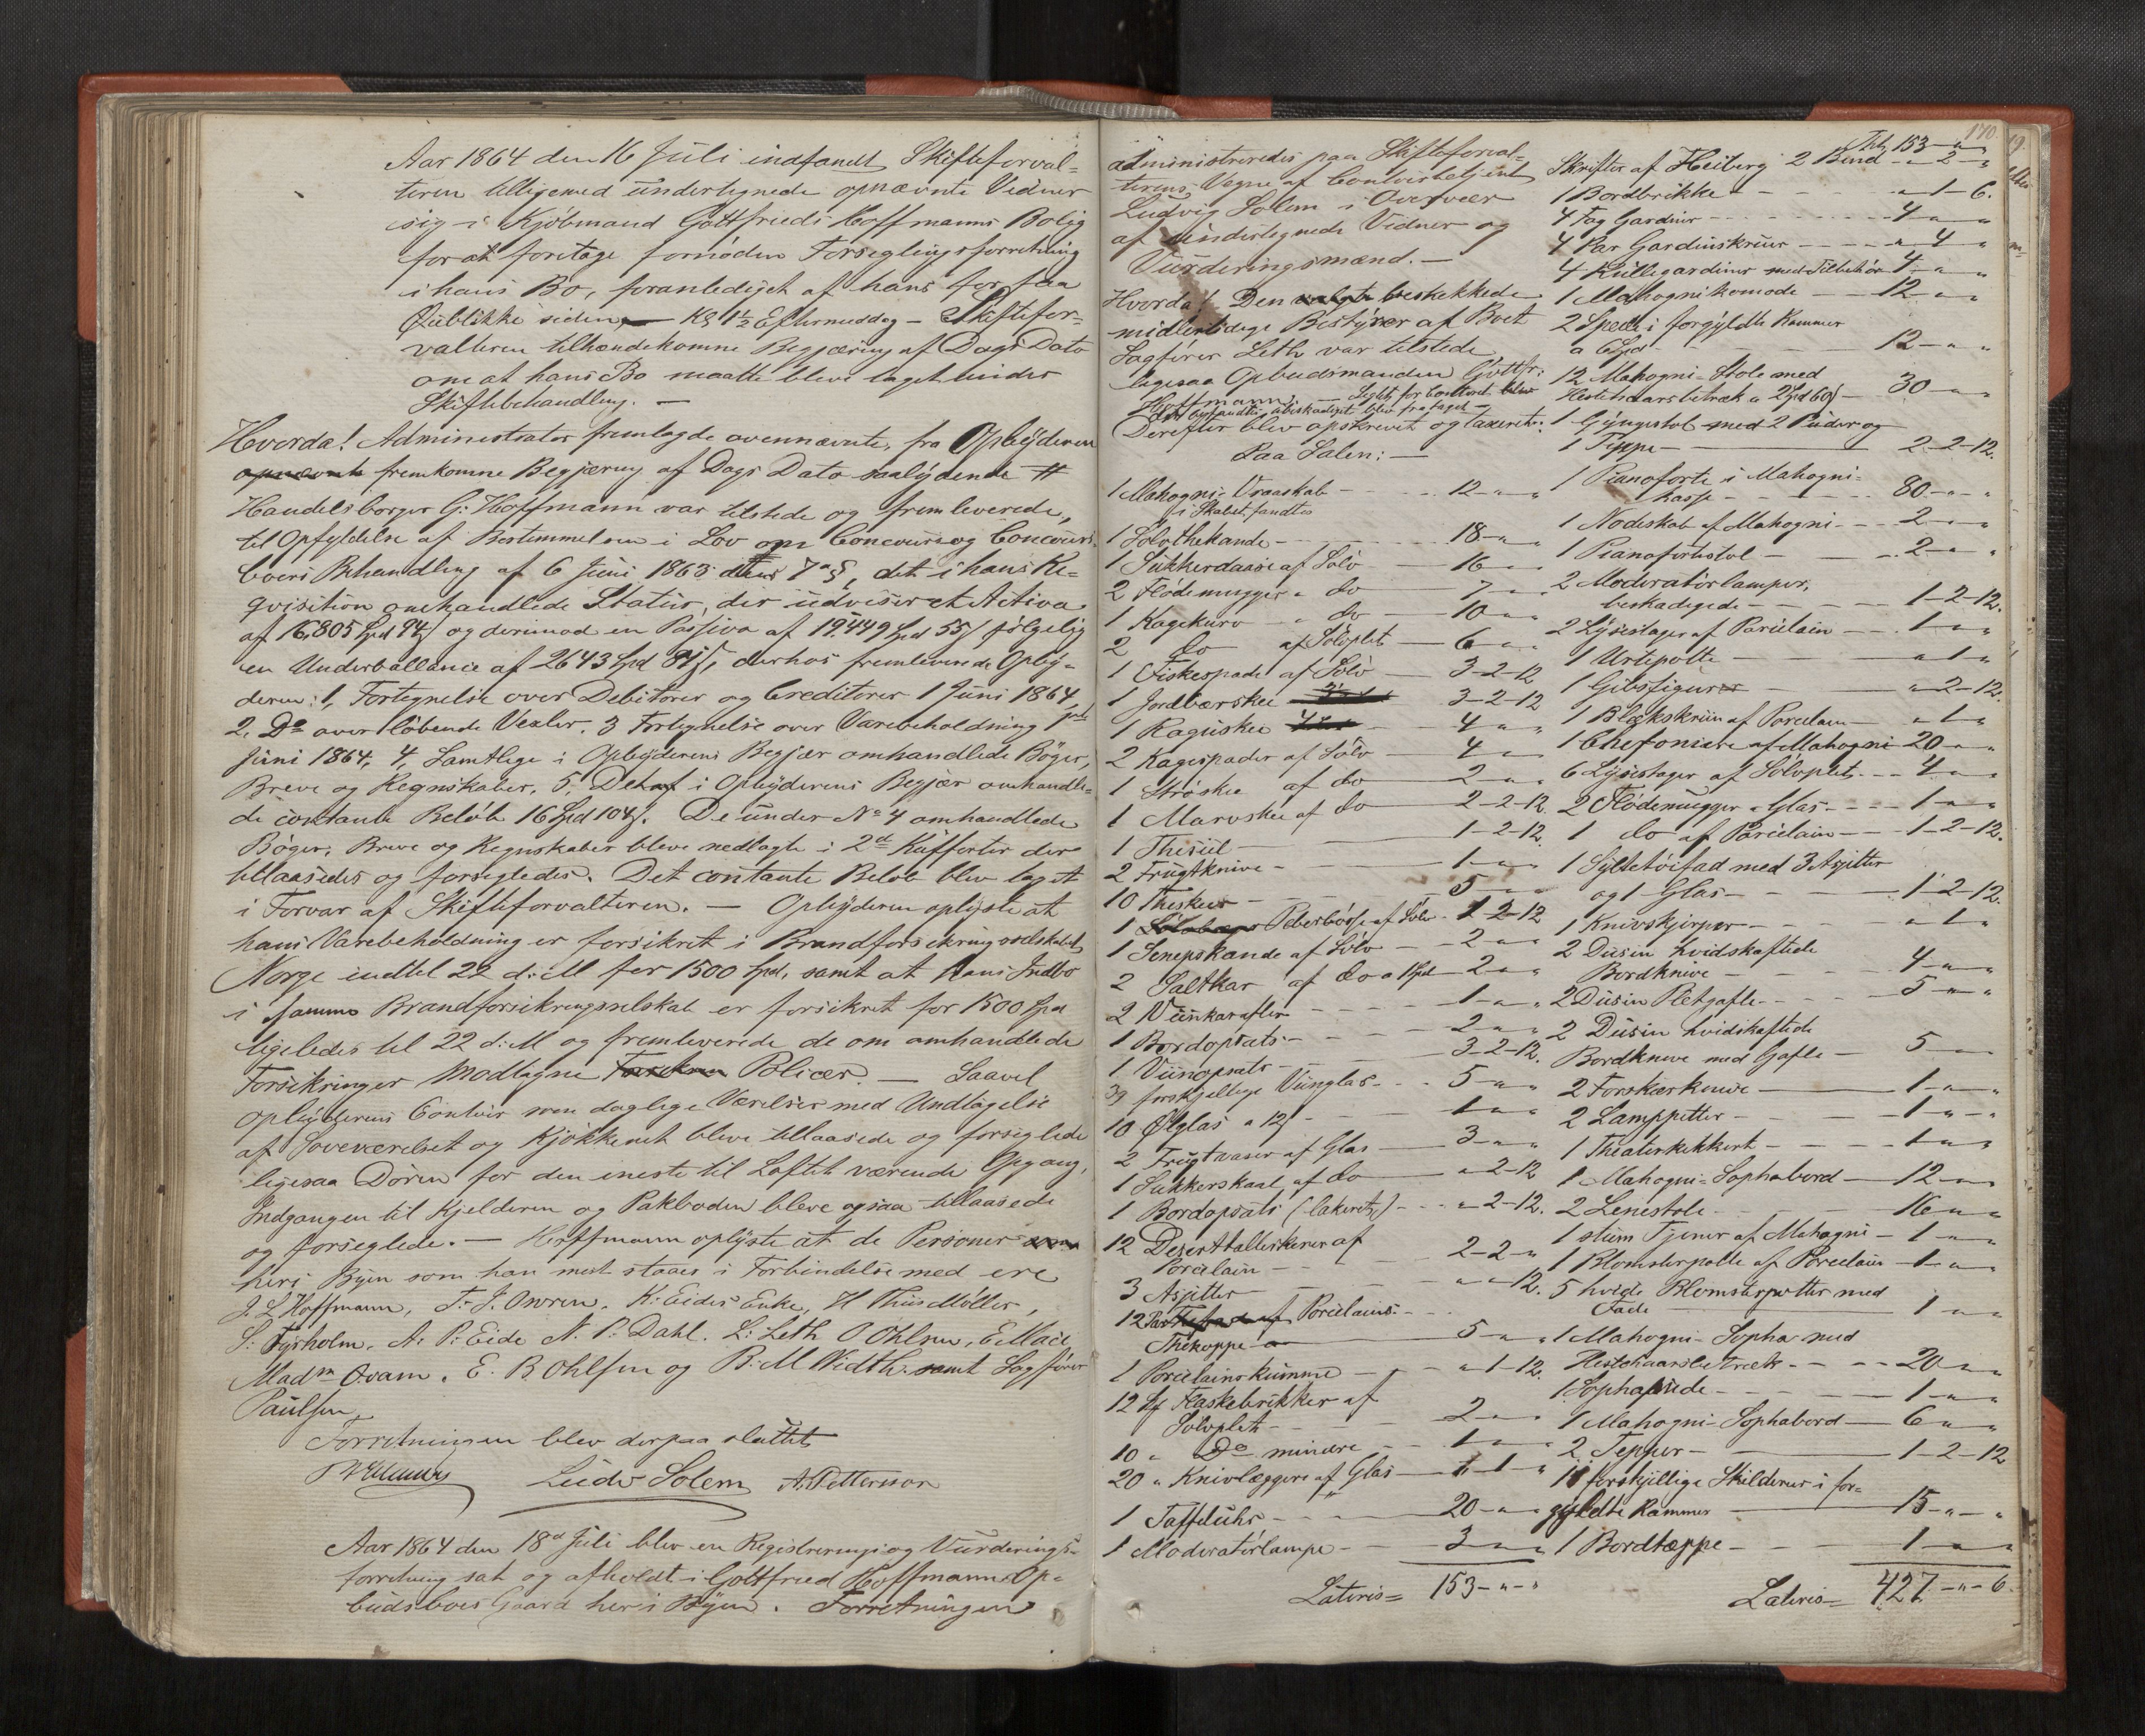 Aar 1864 den 16 Juli indfandt Skifteforval-
teren tilligemed undertegnede opnævnte Vidner
sig i Kjøbmand Gottfried Hoffmanns Bolig
for at foretage fornøden Forseglingsforretning
i hans Bo, foranlediget af hans for faa
Øieblikke siden Kl 1½ Eftermiddag - Skiftefor-
valteren tilhændekomne Begjæring af Dags Dato
om at hans Bo maatte blive taget under
Skiftebehandling. —
Hvorda! Administrator fremlagde ovennævnte, fra Opbyderen
fremkomne Begjæring af Dags Dato saalydende #
Handelsborger G: Hoffmann var tilstede og fremleverede,
til Opfyldelse af Bestemmelsen i Lov om Concours og Concours-
boers Behandling af 6 Juni 1863 dens 7de §, det i hans Re-
qvisition omhandlede Status, der udviser et Activa
af 16,805 Spd 94 s og derimod en Passiva af 19.449 Spd 55 s følgelig
en Underballance af 2643 Spd 81 s, derhos fremleverede Opby-
deren: 1, Fortegnelse over Debitorer og Creditorer 1 Juni 1864,
2, Do over løbende Vexler. 3 Fortegnelse over Varebeholdning 1ste
Juni 1864; 4, Samtlige i Opbyderens Begjær omhandlede Bøger,
Breve og Regnskaber, 5, Det i Opbyderens Begjær omhandle-
de contante Beløb 16 Spd 104 s. De under No 4 omhandlede
Bøger, Breve og Regnskaber bleve nedlagte i 2de Kufferter der
tillaasedes og forsegledes. Det contante Beløb blev taget
i Forvar af Skifteforvalteren. — Opbyderen oplyste at
hans Varebeholdning er forsikret i Brandforsikringsselskabet
Norge indtil 22 d: M for 1500 Spd, samt at hans Indbo
i samme Brandforsikringsselskab er forsikret for 1500 Spd
ligeledes til 22 d: M og fremleverede de om omhandlede
Forsikringer modtagne Policer. — Saavel
Opbyderens Contoir som daglige Værelser med Undtagelse
af Soveværelset og Kjøkkenet bleve tillaasede og forseglede
ligesaa Døren for den eneste til Loftet værende Opgang,
Indgangen til Kjelderen og Pakboden bleve ogsaa tillaasede
og forseglede. — Hoffmann oplyste at de Personer
her i Byen som han mest staaer i Forbindelse med ere
J. L. Hoffmann, T. J. Owren. K: Eides Enke, H Thiis Møller,
S: Fyrholm. A: P: Eide N. P: Dahl. L: Leth O Ohlsen, E. Mack
Madm Qvam. E. B. Ohlsen og B: M Vidth samt Sagfører
Paulsen
Forretningen blev derpaa sluttet
Ludv Solem A. Pettersson
Aar 1864 den 18de Juli blev en Registrerings og Vurderings-
forretning sat og afholdt i Gottfried Hoffmanns Op-
budsboes Gaard her i Byen. Forretningen
administreredes paa Skifteforval-
terens Vegne af Contoirbetjent
Ludvig Solem i Overvær
af undertegnede Vidner og
Vurderingsmænd. —
Hvorda! Den beskikkede
midlertidige Bestyrer af Boet
Sagfører Leth var tilstede
ligesaa Opbudsmanden Gottfr:
Hoffmann. — Seglet for Contoret blev
ubeskadiget blev frataget —
Derefter blev opskrevet og taxeret:
Paa Salen: —
1 Mahogni-Vraaskab - 12 - " - "
i Skabet fandtes
1 Sølvthekande - 18 - " - "
1 Sukkerdaase af Sølv - 16 - " - "
2 Flødemugger " do - 7 - " - "
1 Kagekurv " do - 10 - " - "
2 do af Sølvplet - 6 - " - "
1 Fiskespade af Sølv - 3-2-12
1 Jordbærskee 3-2-12
1 Raguskee 4 - " - "
2 Kagespader af Sølv - 4 - " - "
1 Strøskee af do - 2 - " - "
1 Marvskee af do - 2-2-12
1 Thesiil - 1-2-12
2 Frugtknive - 1 - " - "
10 Theskeer - 5 - " - "
1 Peberbøsse af Sølv - 1-2-12
1 Senepskande af Sølv - 2 - " - "
2 Saltkar af do a 1 Spd - 2 - " - "
2 Viinkarafler - 1 - " - "
1 Bordopsats - 2 - " - "
1 Viinopsats - 3-2-12.
39 forskjellige Viinglas - 5 - " - "
10 Ølglas a 12 s - 1 - " - "
2 Frugtvaser af Glas - 3 - " - "
1 Sukkerskaal af do - " - 2-12
1 Bordopsats (lakeret) - " - 2-12.
12 Deserttallerkener af
Porcelain - 2-2-"
3 Asjetter - " - " - 12.
12 Par Porcelains-
Thekopper 5 - " - "
1 Porcelainskumme - " - 1-12.
12 St Flaskebrikker af
Sølvplet - 2 - " - "
10 " Do mindre - 1 - " - "
20 " Knivlæggere af Glas - 1 - "
1 Taffeluhr - 20 - " - "
1 Moderatørlampe - 3 - " - "
Lateris = 153 - " - "
170
Trsp 153 - " - "
Skrifter af Heiberg 2 Bind - " 2 - "
1 Bordbrikke - " - 1 - 6.
4 Fag Gardiner - 4 - " - "
4 Par Gardinskruer - " - 4 - "
4 Rullegardiner med Tilbehør 4 - " - "
1 Mahognikomode - 12 - " - "
2 Speile i forgyldte Rammer
a 6 Spd - 12 - " - "
12 Mahogni-Stole med
Hestehaarsbetræk a 2 Spd 60 s 30 - " - "
1 Gyngestol med 2 Puder og
1 Teppe - 2-2-12.
1 Pianoforte i Mahogni-
kasse - 80 - " - "
1 Nodeskab af Mahogni - 2 - " - "
1 Pianofortestol - 2 - " - "
2 Moderatørlamper,
beskadigede - 1-2-12.
2 Lysestager af Porcelain - 1 - " - "
1 Urtepotte - " - 1 - "
1 Gibsfigur - " - 2-12.
1 Blækskriin af Porcelain - " - 1 - "
1 Chefoniere af Mahogni 20 - " - "
6 Lysestager af Sølvplet - 4 - " - "
2 Flødemugger " Glas - 1 - " - "
1 do af Porcelain - 1-2-12.
1 Syltetøifad med 3 Asjetter
og 1 Glas - 1-2-12.
1 Knivskjærper - " - 1 - "
2 Dusin hvidskaftede
Bordknive - 4 - " - "
2 Dusin Pletgafle - 5 - " - "
2 Dusin hvidskaftede
Bordknive med Gafle - 5 - " - "
2 Forskærknive - 1 - " - "
2 Lampetter - 1 - " - "
1 Theaterkikkert - 1 - " - "
1 Mahogni-Sophabord - 12 - " - "
2 Lenestole - 16 - " - "
1 stum Tjener af Mahogni - 1 - " - "
1 Blomsterpotte af Porcelain - 1 - " - "
5 hvide Blomsterpotter med
Fade - 1 - " - "
1 Mahogni-Sopha med
Hestehaarsbetræk - 20 - " - "
1 Sophapude - 1 - " - "
1 Mahogni-Sophabord - 6 - " - "
2 Tepper - 1-2-12
11 forskjellige Skilderier i for-
gyldte Rammer - 15 - " - "
1 Bordteppe - 1 - " - "
Lateris = 427 - " - 6